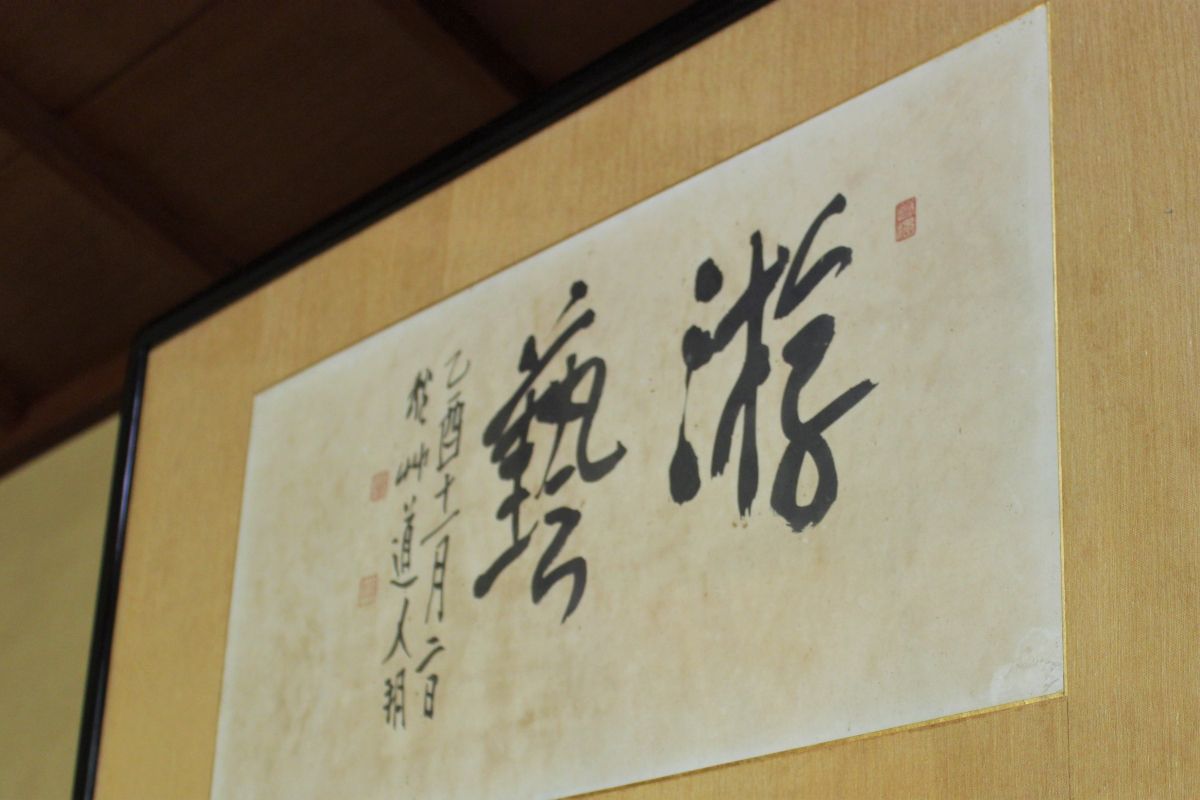 游藝
乙酉十一月二日
秋艸道人